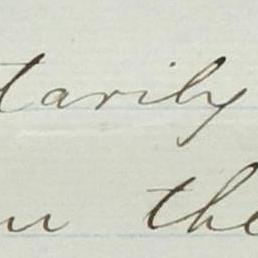 tarily
the